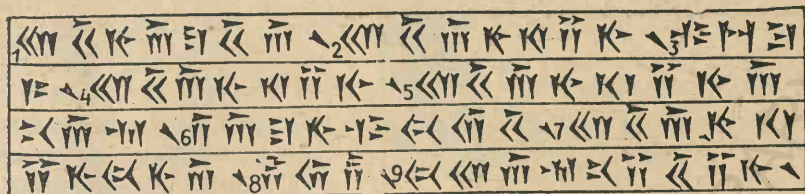 1𐎧𐏁𐎹𐎠𐎼𐏁𐎠 𐏐 2𐎧𐏁𐎠𐎹𐎰𐎡𐎹 𐏐 3𐎺𐏀𐎼
𐎣 𐏐 4𐎧𐏁𐎠𐎹𐎰𐎡𐎹 𐏐 5𐎧𐏁𐎠𐎹𐎰𐎡𐎹𐎠
𐎴𐎠𐎶 𐏐 6𐎭𐎠𐎼𐎹𐎺𐏃𐎢𐏁 𐏐 7𐎧𐏁𐎠𐎹𐎰
𐎡𐎹𐏃𐎹𐎠 𐏐 8𐎱𐎢𐏂 𐏐 9𐏃𐎧𐎠𐎶𐎴𐎡𐏁𐎡𐎹 𐏐